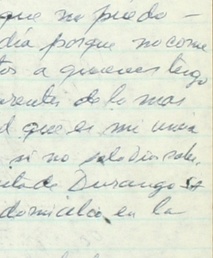 que no puedo -
día porque no come
tos a quienes tengo
parientes de lo mas
d que es mi unica
si no solo Dios sabe
de Durango
domicilio en la